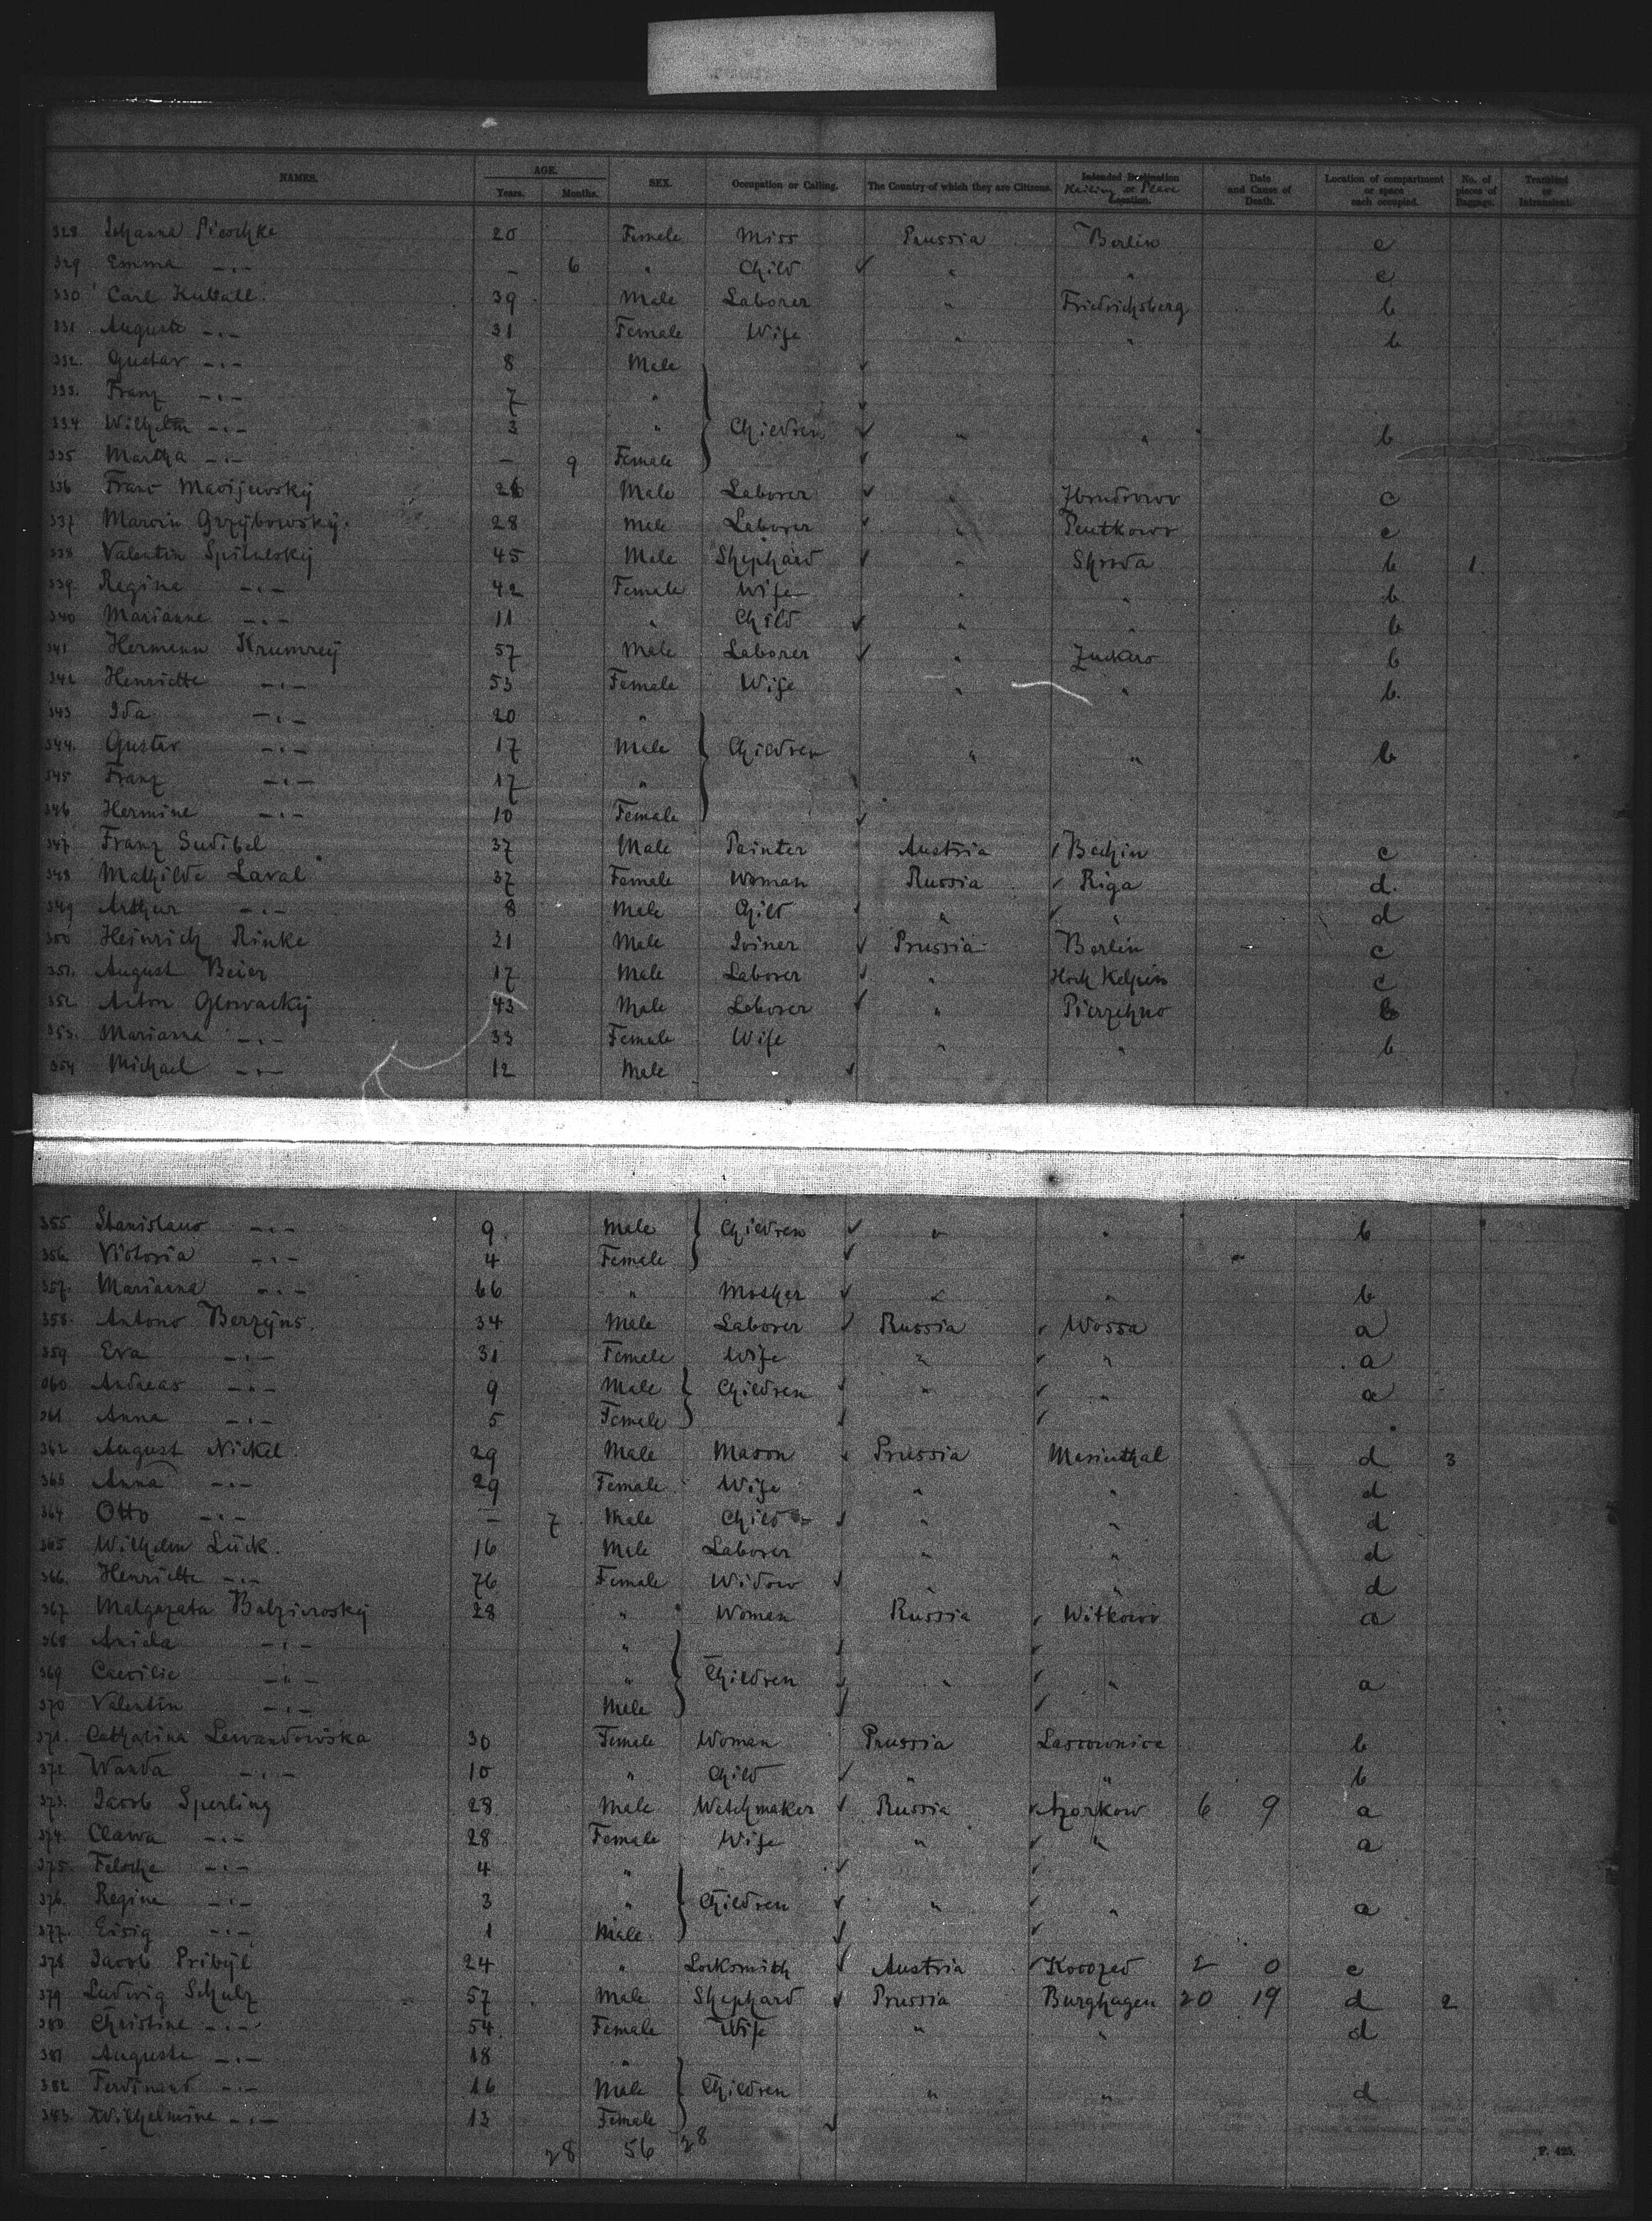 NAMES. AGE. Years. Months. SEX. Occupation or Calling. The Country of which they are Citizens. Intended Destination or Location. Place Date and Cause of Death. Location of compartment or space each occupied. No. of pieces of Baggage. Transient or Intransient.
328 Johanna Pieschke 20 Female Miss Prussia Berlin c
329 Emma -"- - 6 " Child " " c
330 Carl Kuball. 39 Male Laborer " Friedrichsberg b
331 Auguste -"- 31 Female Wife " " b
332. Gustav -"- 8 Male
333. Franz -"- 7 "
334 Wilhelm -"- 3 " Children " " b
335 Martha -"- - 9 Female
336 Male Laborer " c
337 Marcin Grzybowsky. 28 Male Laborer " Pentkowo c
338 Valentin 45 Male Shephard " Shroda b 1.
339. Regine -"- 42 Female Wife " " b
340 Marianne -"- 11 " Child " " b
341 Hermann Krumrey 57 Male Laborer " b
342 Henriette -"- 53 Female Wife " " b.
343 Ida -"- 20 "
344. Gustav -"- 17 Male Children " " b
345 Franz -"- 17 "
346 Hermine -"- 10 Female
347 Franz 37 Male Painter Austria Bechin c
348 Mathilde Laval 37 Female Woman Russia Riga d.
349 Arthur -"- 8 Male Child " " d
350 Heinrich Rinke 21 Male Joiner Prussia Berlin c
351. August Beier 17 Male Laborer " Hoch Kelpin c
352 Anton Glowacky 43 Male Laborer " b
353. Marianna -"- 33 Female Wife " " b
354 Michael -"- 12 Male
355 Stanislaus -"- 9. Male Children " " b
356. Victoria -"- 4 Female
357. Marianna -"- 66 " Mother " " b
358. Antono Berzyns. 34 Male Laborer Russia Wossa a
359 Eva -"- 31 Female Wife " " a
360 Andreas -"- 9 Male Children " " a
361 Anna -"- 5 Female
362 August Nickel 29 Male Mason Prussia Marienthal d 3
363 Anna -"- 29 Female Wife " " d
364 Otto -"- - 7 Male Child " " d
365 Wilhelm Lück. 16 Male Laborer " " d
366. Henriette -"- 76 Female Widow " " d
367 Malgazata 28 " Woman Russia Witkowo a
368 -"- "
369 Caecilie -"- " Children " " a
370 Valentin -"- Male
371. Catharina Lewandowska 30 Female Woman Prussia Lascownica b
372 Wanda -"- 10 " Child " " b
373. Jacob Sperling 28 Male Watchmaker Russia 6 9 a
374. Clawa -"- 28 Female Wife " " a
375. -"- 4 "
376. Regine -"- 3 " Children " " a
377. Eisig -"- 1 Male
378 Jacob Pribyl 24 " Locksmith Austria 2 0 c
379 Ludwig Schulz 57 Male Shephard Prussia Burghagen 20 19 d 2
380 Christine -"- 54. Female Wife " " d
381 Auguste -"- 18 "
382 Ferdinand -"- 16 Male Children " " d
383. Wilhelmine -"- 13 Female
28 56 28
P. 425.